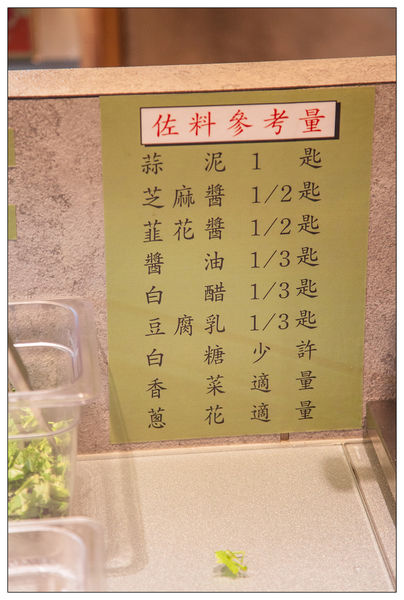 佐料參考量
蒜泥 1 匙
芝麻醬 1/2匙
韮花醬 1/2匙
醬油 1/3匙
白醋 1/3匙
豆腐乳 1/3匙
白糖 少許
香菜 適量
蔥花 適量